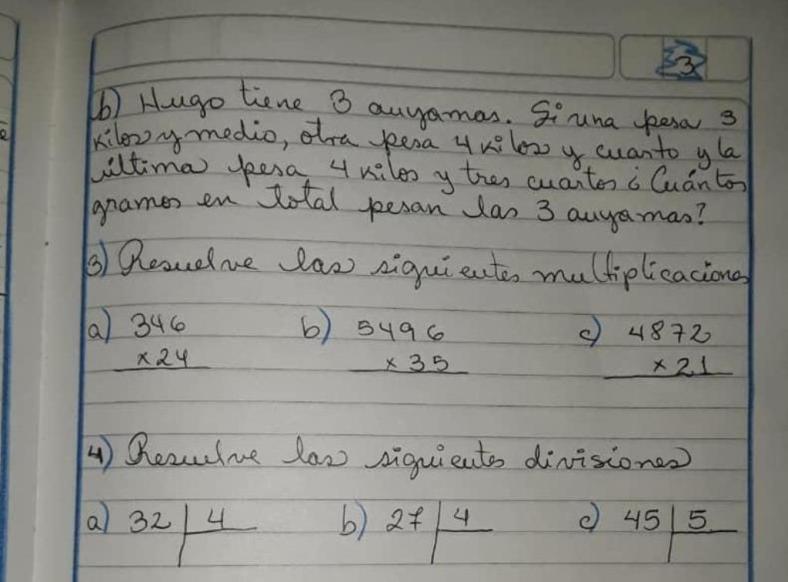 3
b) Hugo tiene 3 auyamas. Si una pesa 3
kilos y medio, otra pesa 4 kilos y cuarto y la
última pesa 4 kilos y tres cuartos ¿Cuántos
gramos en total pesan las 3 auyamas?
3) Resuelve las siguientes multiplicaciones
a) 346 b) 5496 c) 4872
x24 x35 x21
4) Resuelve las siguientes divisiones
a) 32 4 b) 27 4 c) 45 5